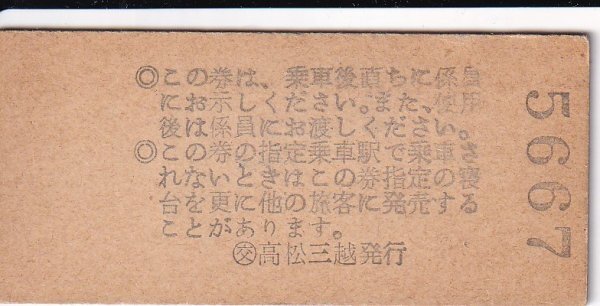 ◎この券は、乗車後直ちに係員
にお示しください。また、使用
後は係員にお渡しください。
◎この券の指定乗車駅で乗車さ
れないときはこの券で指定する
台を更に他の旅客に発売する寝
ことがあります。
㊋高松三越発行
5667